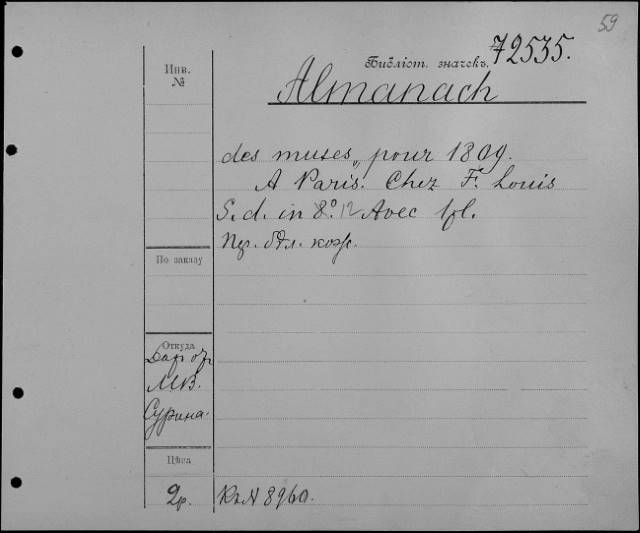 59
Инв.
№
Библіот. значекъ.
72535.
Almanach
des muses, pour 1809.
A Paris. Chez F. Louis
S. d. in 8º. 12 Avec 1 pl.
кож.
По заказу
Откуда
М.В.
Сурина.
Цѣна
2р.
8960.